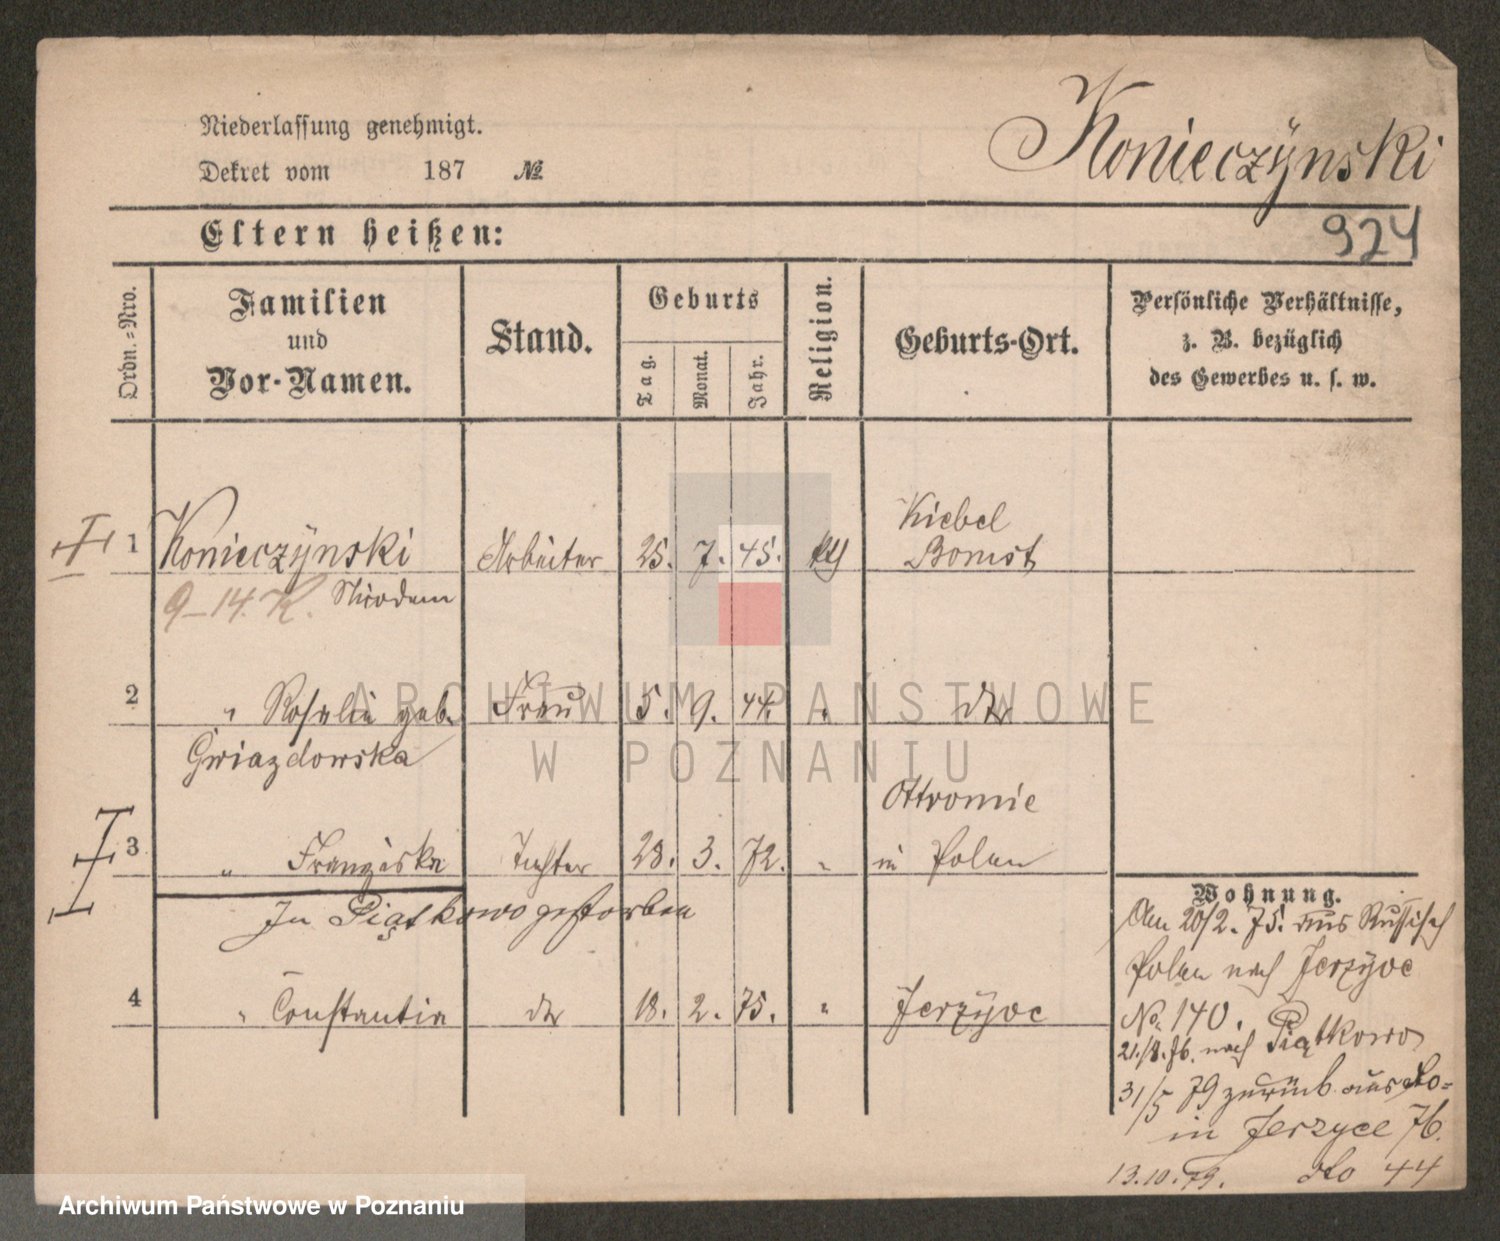 Niederlassung genehmigt.
Dekret vom 187 №
Konieczÿnski
924
Eltern heißen:
Ordn.-Nro.
Familien
und
Vor-Namen.
Stand.
Geburts
Tag.
Monat.
Jahr.
Religion.
Geburts-Ort.
Persönliche Verhältnisse,
z. B. bezüglich
des Gewerbes u. s. w.
Kiebel
1 Konieczÿnski Arbeiter 25. 7. 45. Bomst
9-14. K. Nicodem
2 " Rosalie geb. Frau 5. 9. 44. " dto
Gwiazdowska
Ottromie
3 " Franziska Tochter 28. 3. 72. " in Polen
In Piątkowo gestorben
4 " Constantia dto 18. 2. 75. " Jerzÿce
Wohnung.
Am 20/2. 75. aus Russisch
Polen nach Jerzÿce
No. 140.
21./8. 76. nach Piątkowo
31/5 79 zurück aus do=
in Jerzyce 76.
13.10.79. dto 44
ARCHIWUM PAŃSTWOWE
W POZNANIU
Archiwum Państwowe w Poznaniu